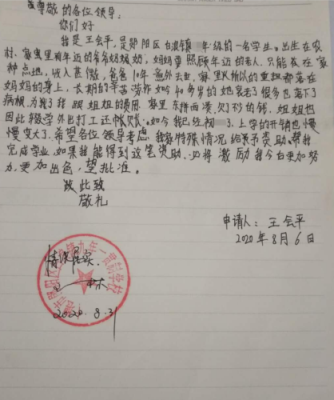 尊敬的各位领导:
你们好
我是王会平,是郧阳区白浪镇 年级的一名学生。出生在农
村,家里有年迈的爷爷奶奶,妈妈要照顾年迈的老人,只能在家
种点地,收入甚微,爸爸10年意外去世,家里所有的重担都落在
妈妈的身上,长期的辛苦劳作 如今40多岁的她衰老了很多也落下了
病根,为了我跟姐姐的费用 家里东拼西凑欠下的钱,姐姐也
因此辍学外出打工还账 如今我已经初 了,上学的开销也慢
慢变大了,希望各位领导考虑我家特殊情况给予资助,帮我
完成学业,如果我能得到这笔资助,必将激励我今后更加努
力,更加出色,望批准。
致此致
敬礼
申请人:王会平
2020年8月6日
情况属实
九年一贯制学校
2020.8.31